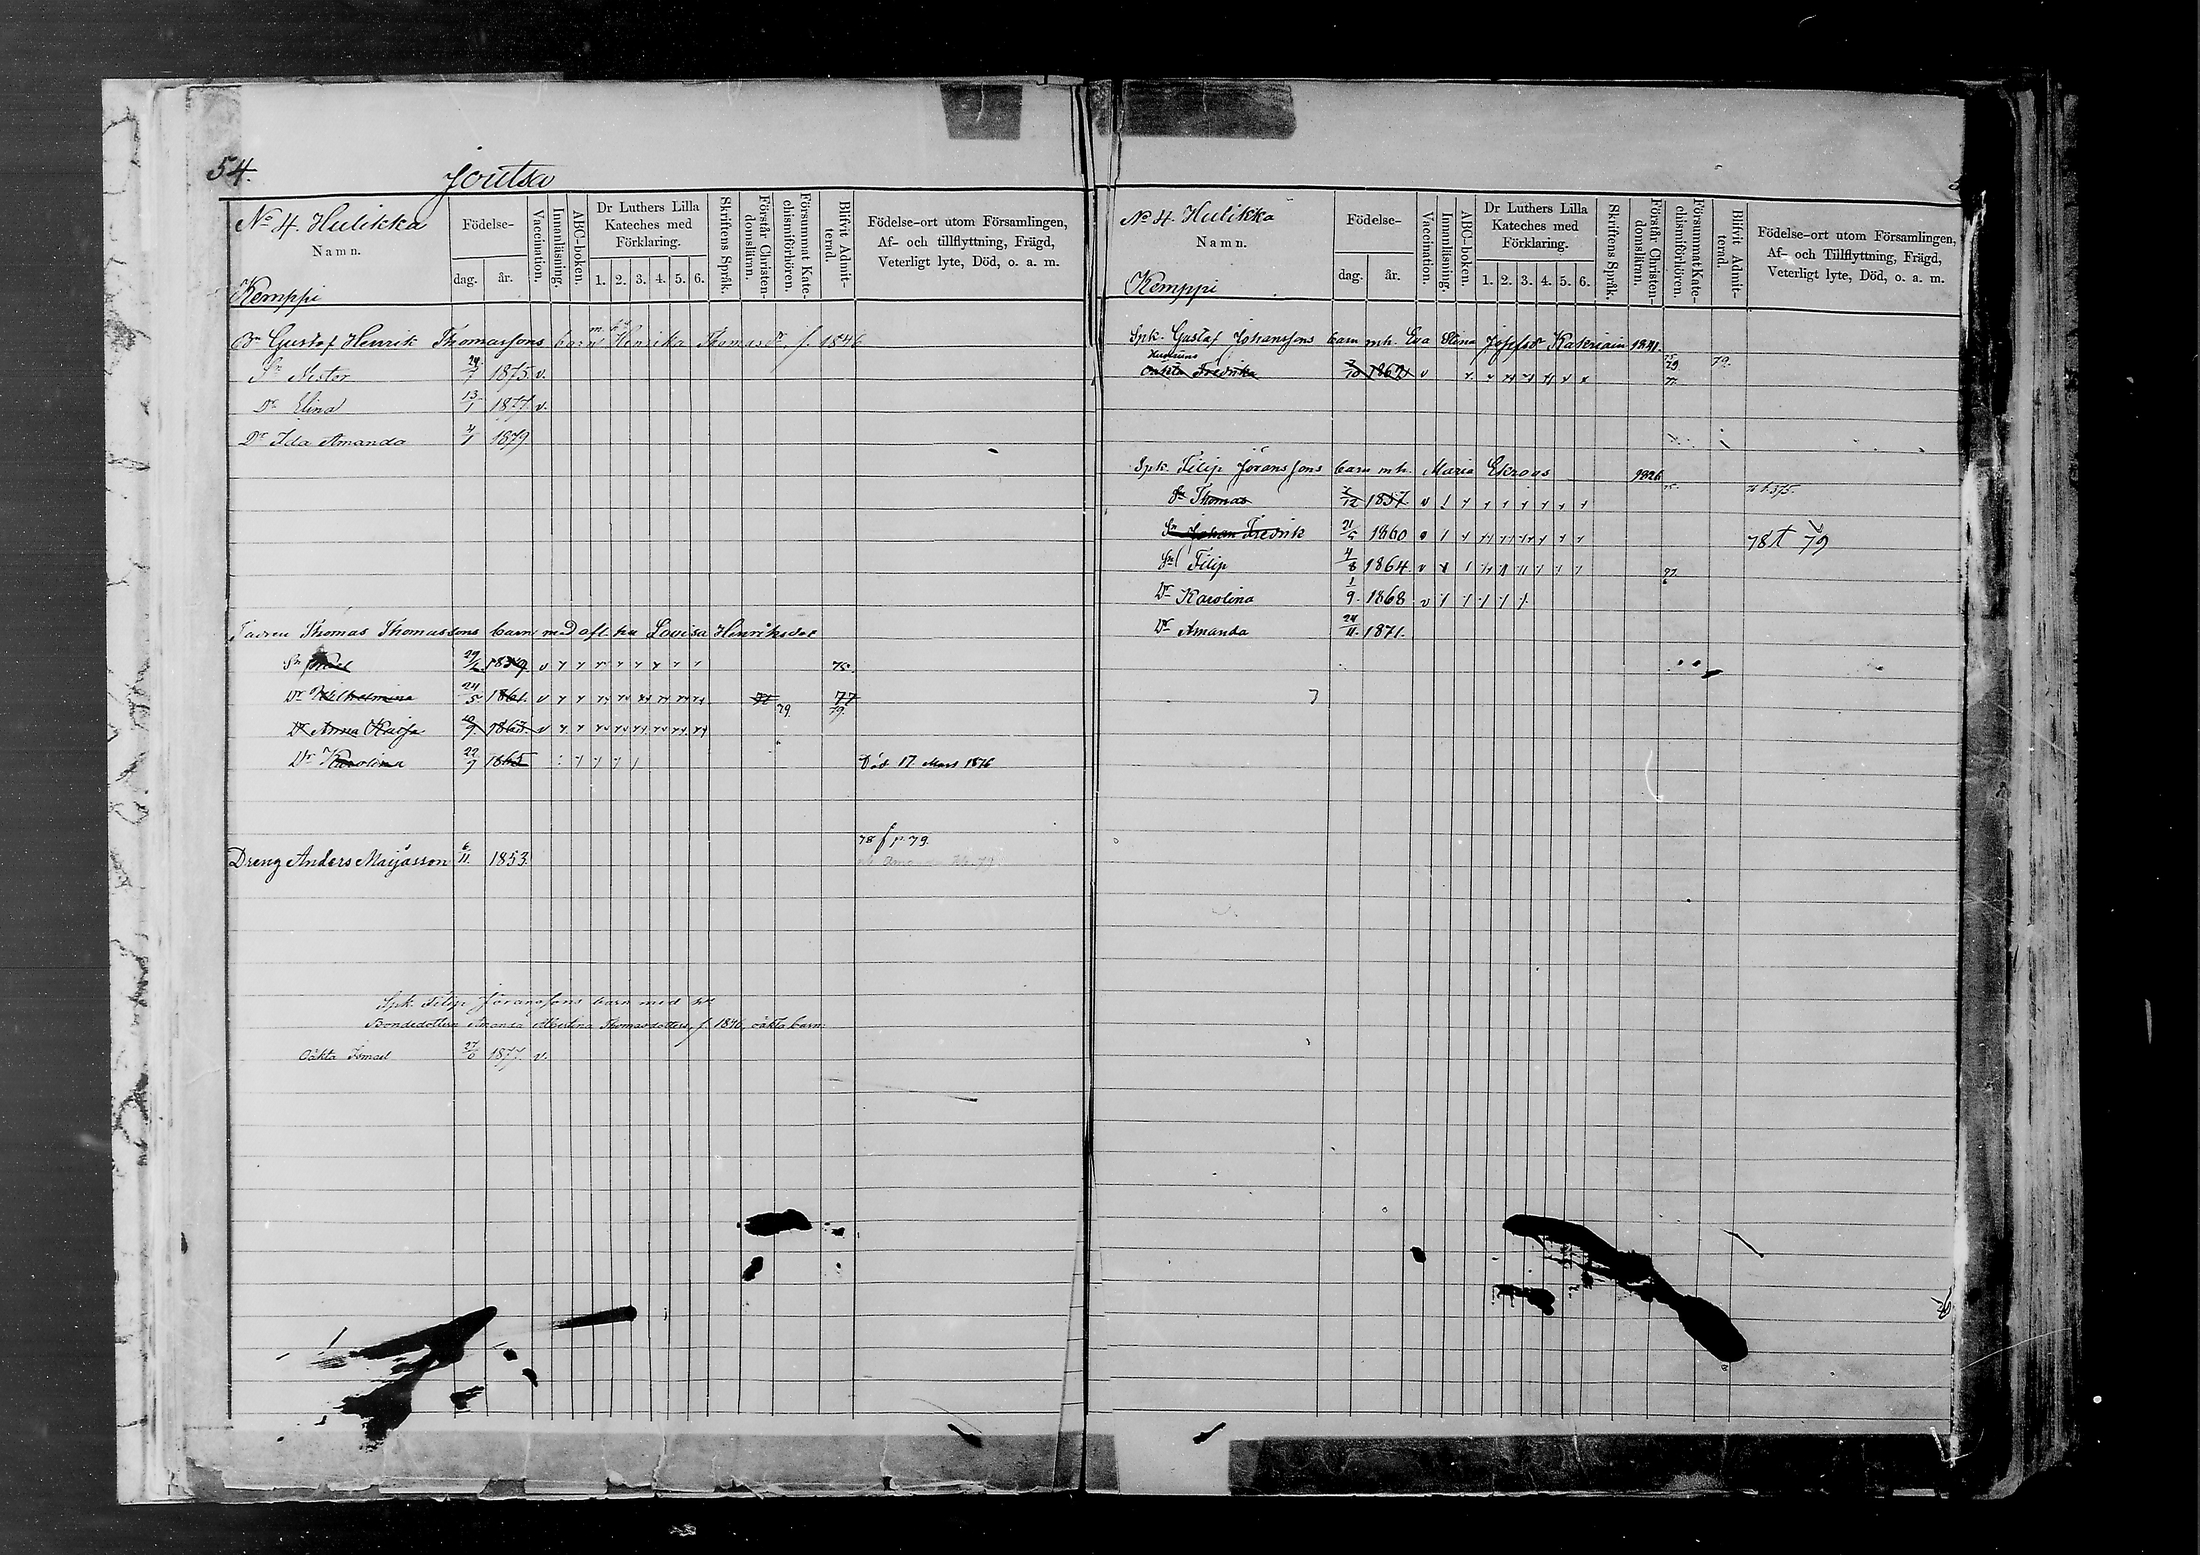 54.
Joutsa
No 4. Hulikka
Namn.
Kemppi
Födelse-
dag.
år.
Vaccination.
Innanläsning.
ABC-boken.
Dr Luthers Lilla
Kateches med
Förklaring.
1. 2. 3. 4. 5. 6.
Skriftens Språk.
Förstår Christen-
domsläran.
Försummat Kate-
chismiförhören.
Blifvit Admit-
terad.
Födelse-ort utom Församlingen,
Af- och tillflyttning, Frägd,
Veterligt lyte, Död, o. a. m.
Bn Gustaf Henrik Thomassons barn m. h. Henrika Thomasdr, f. 1846
Sn Nestor 1875 v.
Dr Elina 13/1 1877 v.
Dr Ida Amanda 4/1 1879
Thomas Thomassons barn med afl. hu Lovisa Henriksdr
Sn 1859 v 75.
Dr Wilhelmina 24/5 1861. v 77 79. 79.
Dr Anna Kaisa 9 1863 v
Dr Karolina 22/9 1865 Död 17 Mars 1876
78 f p. 79.
Dreng Anders Maijasson 6/11. 1853.
Spk. Filip Göranssons barn med
Bondedottern Amanda Albertina Thomasdotter, f. 1846, oäkta barn:
Oäkta Ismael 27/6 1877. v.
No 4. Hulikka
Namn.
Kemppi
Födelse-
dag.
år.
Vaccination.
Innanläsning.
ABC-boken.
Dr Luthers Lilla
Kateches med
Förklaring.
1. 2. 3. 4. 5. 6.
Skriftens Språk.
Förstår Christen-
domsläran.
Försummat Kate-
chismiförhören.
Blifvit Admit-
terad.
Födelse-ort utom Församlingen,
Af- och Tillflyttning, Frägd,
Veterligt lyte, Död, o. a. m.
Spk. Gustaf Johanssons barn mh. Eva Stina 1841.
Hustruns
oäkta Fredrika v 79.
Spk. Filip Göranssons barn mh. Maria Ekroos 1826
Sn Thomas 1857. v
Sn Johan Fredrik 21/5 1860 78 t 79
Sn Filip 4/8 1864. v 77.
Dr Karolina 1/9. 1868 v
Dr Amanda 24/11. 1871.